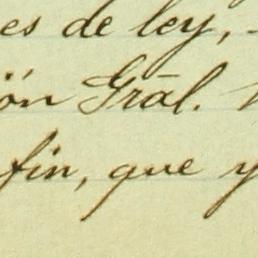 es de ley,
ón Grāl.
fin, que y